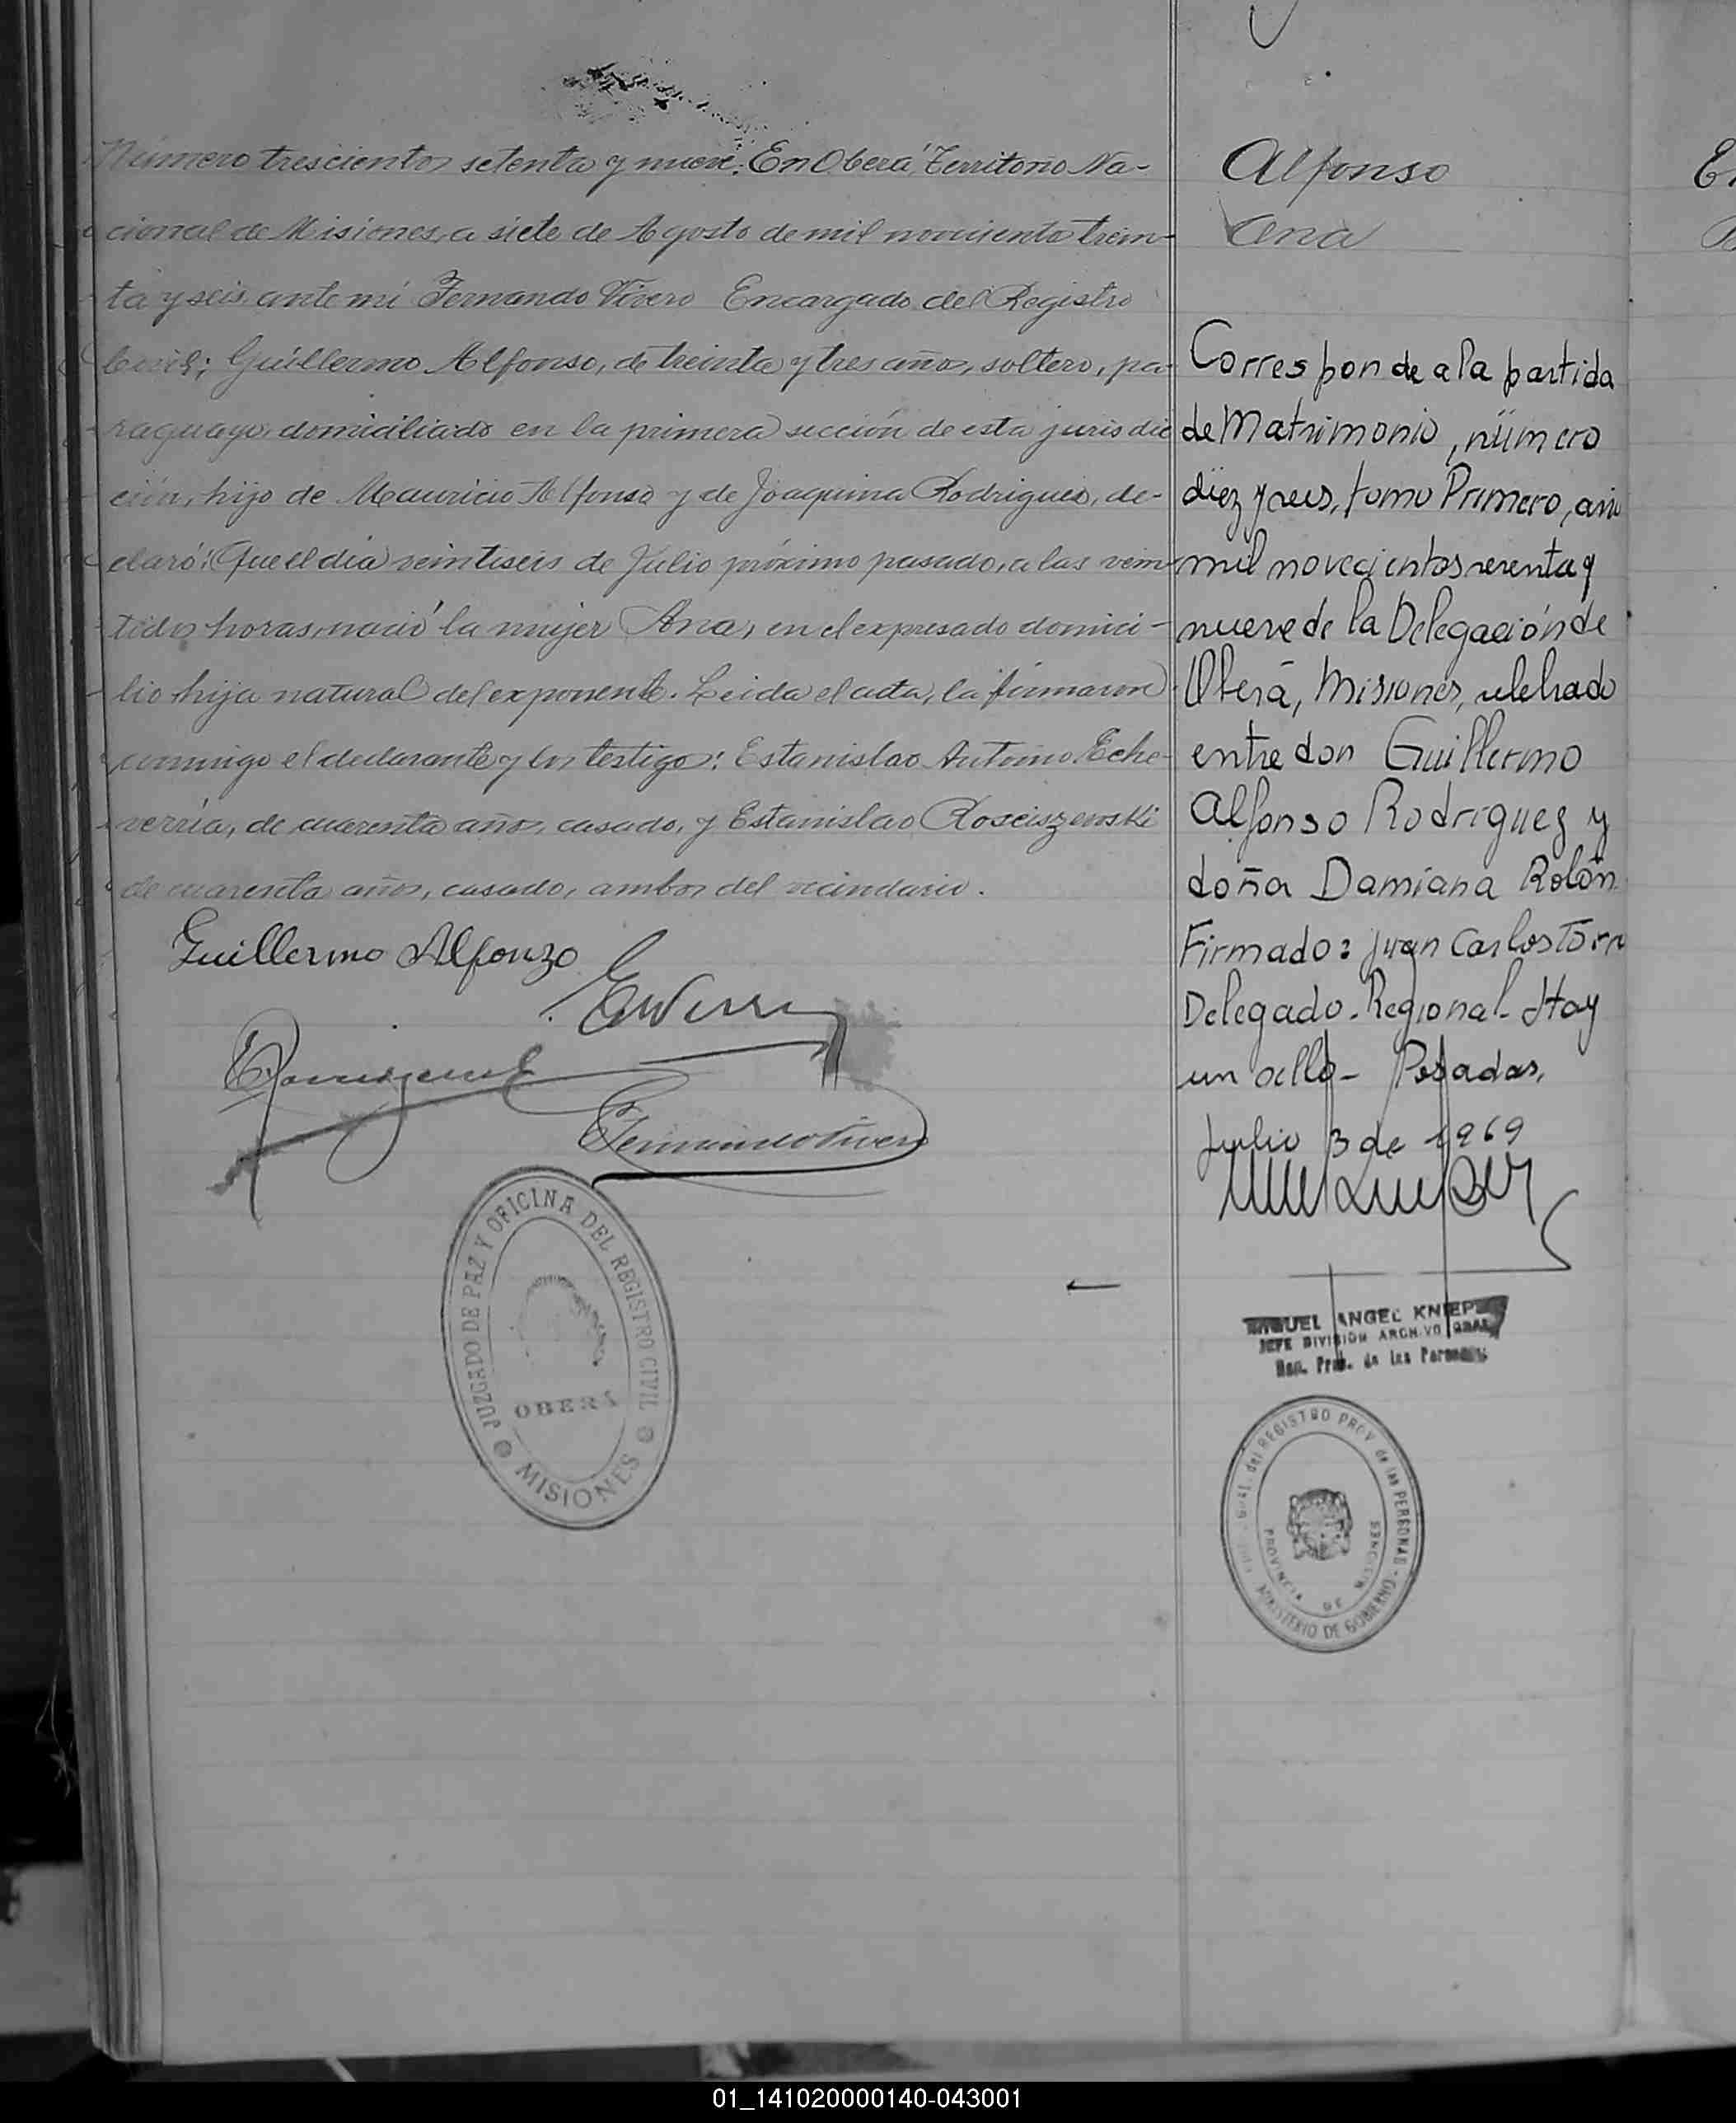 Número trescientos setenta y nueve: En Oberá, Territorio Na-
cional de Misiones, a siete de Agosto de mil novecientos trein-
ta y seis, ante mí Fernando Vivero Encargado del Registro
Civil; Guillermo Alfonso, de treinta y tres años, soltero, pa-
raguayo, domiciliado en la primera sección de esta jurisdic
ción, hijo de Mauricio Alfonso y de Joaquina Rodrigues, de-
claró: Que el día veintiseis de Julio próximo pasado, a las vein-
tidos horas, nació la mujer Ana, en el expresado domici-
lio hija natural del exponente. Leida el acta, la firmaron
conmigo el declarante y los testigos: Estanislao Antonio Eche-
verria, de cuarenta años, casado, y Estanislao Rosciszewski
de cuarenta años, casado, ambos del vecindario.
Guillermo Alfonzo
Fernando Vivero
JUZGADO DE PAZ Y OFICINA DEL REGISTRO CIVIL
OBERÁ
MISIONES
Alfonso
Ana
Corresponde a la partida
de Matrimonio, número
diez y seis, tomo Primero, año
mil novecientos sesenta y
nueve de la Delegación de
Oberá, Misiones, celebrado
entre don Guillermo
Alfonso Rodríguez y
doña Damiana Rolón
Firmado: Juan Carlos Torr
Delegado Regional - Hay
un sello - Posadas,
Julio 3 de 1969
MIGUEL ANGEL KNIEP
JEFE DIVISIÓN ARCHIVO GRAL
Prov. de las Personas
GRAL. del REGISTRO PROV de las PERSONAS -
MINISTERIO DE GOBIERNO
PROVINCIA DE MISIONES
01_141020000140-043001